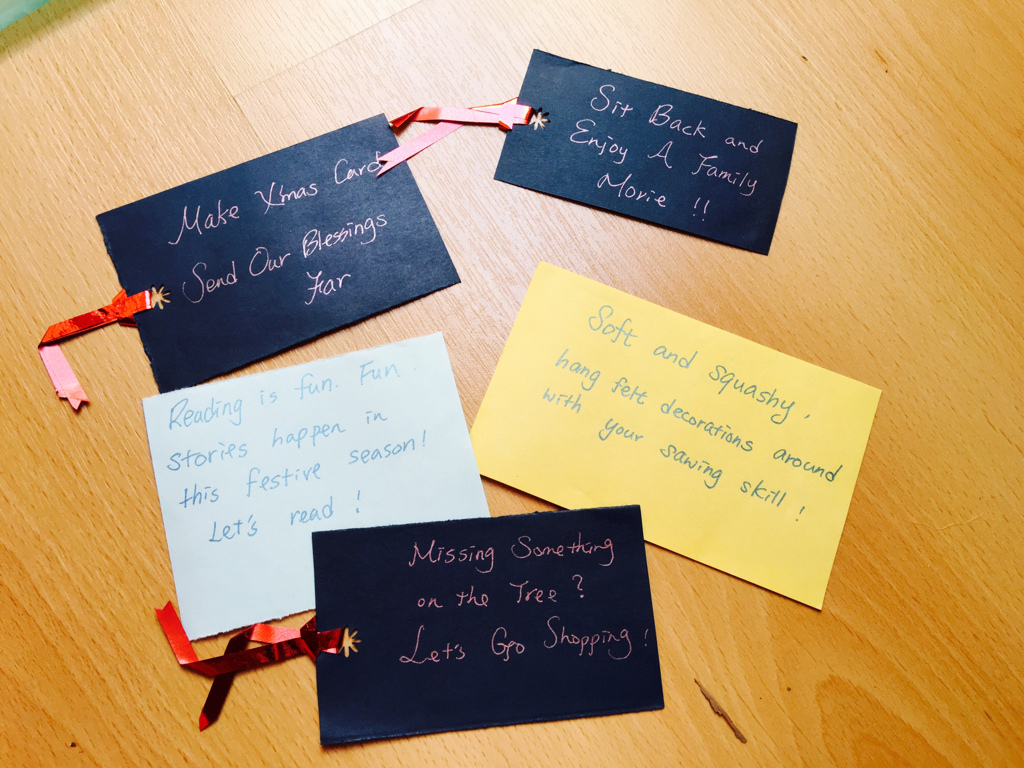 Sit Back and
Enjoy A Family
Movie !!
Make X'mas Card
Send Our Blessings
Far
Soft and squashy,
hang felt decorations around
with your sawing skill!
Reading is fun. Fun
stories happen in
this festive season!
Let's read!
Missing Something
on the Tree?
Let's Go Shopping!